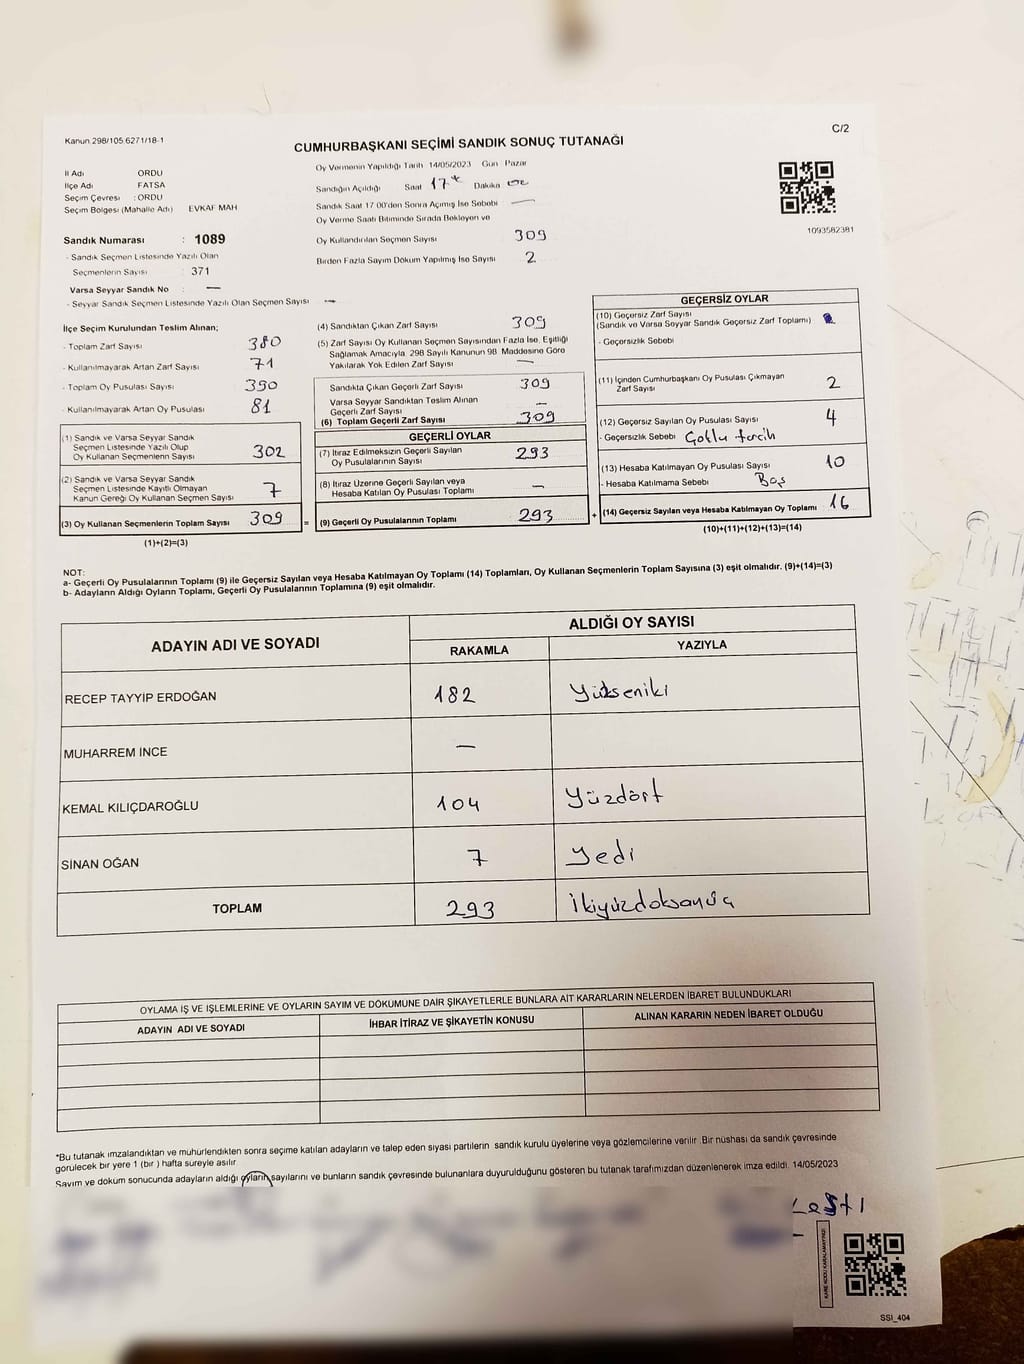 Kanun 298/105 6271/18-1
C/2
CUMHURBAŞKANI SEÇİMİ SANDIK SONUÇ TUTANAĞI
İl Adı ORDU
İlçe Adı FATSA
Seçim Çevresi : ORDU
Seçim Bölgesi (Mahalle Adı) EVKAF MAH
Oy Vermenin Yapıldığı Tarih 14/05/2023 Gün Pazar
Sandığın Açıldığı Saat 17 Dakika
Sandık Saat 17 00'den Sonra Açımış İse Sebebi —
Oy Verme Saati Bitiminde Sırada Bekleyen ve
Oy Kullandırılan Seçmen Sayısı 309
Birden Fazla Sayım Döküm Yapılmış İse Sayısı 2
1093582381
Sandık Numarası : 1089
- Sandık Seçmen Listesinde Yazılı Olan
Seçmenlerin Sayısı : 371
Varsa Seyyar Sandık No : —
- Seyyar Sandık Seçmen Listesinde Yazılı Olan Seçmen Sayısı —
İlçe Seçim Kurulundan Teslim Alınan;
- Toplam Zarf Sayısı 380
- Kullanılmayarak Artan Zarf Sayısı 71
- Toplam Oy Pusulası Sayısı 390
- Kullanılmayarak Artan Oy Pusulası 81
(1) Sandık ve Varsa Seyyar Sandık
Seçmen Listesinde Yazılı Olup
Oy Kullanan Seçmenlerin Sayısı 302
(2) Sandık ve Varsa Seyyar Sandık
Seçmen Listesinde Kayıtlı Olmayan
Kanun Gereği Oy Kullanan Seçmen Sayısı 7
(3) Oy Kullanan Seçmenlerin Toplam Sayısı 309 =
(1)+(2)=(3)
(4) Sandıktan Çıkan Zarf Sayısı 309
(5) Zarf Sayısı Oy Kullanan Seçmen Sayısından Fazla İse, Eşitliği
Sağlamak Amacıyla, 298 Sayılı Kanunun 98 Maddesine Göre
Yakılarak Yok Edilen Zarf Sayısı —
Sandıkta Çıkan Geçerli Zarf Sayısı 309
Varsa Seyyar Sandıktan Teslim Alınan
Geçerli Zarf Sayısı —
(6) Toplam Geçerli Zarf Sayısı 309
GEÇERLİ OYLAR
(7) İtiraz Edilmeksizin Geçerli Sayılan
Oy Pusulalarının Sayısı 293
(8) İtiraz Üzerine Geçerli Sayılan veya
Hesaba Katılan Oy Pusulası Toplamı —
(9) Geçerli Oy Pusulalarının Toplamı 293 +
GEÇERSİZ OYLAR
(10) Geçersiz Zarf Sayısı
(Sandık ve Varsa Seyyar Sandık Geçersiz Zarf Toplamı)
- Geçersizlik Sebebi
(11) İçinden Cumhurbaşkanı Oy Pusulası Çıkmayan
Zarf Sayısı 2
(12) Geçersiz Sayılan Oy Pusulası Sayısı 4
- Geçersizlik Sebebi Çoklu tercih
(13) Hesaba Katılmayan Oy Pusulası Sayısı 10
- Hesaba Katılmama Sebebi Boş
(14) Geçersiz Sayılan veya Hesaba Katılmayan Oy Toplamı 16
(10)+(11)+(12)+(13)=(14)
NOT:
a- Geçerli Oy Pusulalarının Toplamı (9) ile Geçersiz Sayılan veya Hesaba Katılmayan Oy Toplamı (14) Toplamları, Oy Kullanan Seçmenlerin Toplam Sayısına (3) eşit olmalıdır. (9)+(14)=(3)
b- Adayların Aldığı Oyların Toplamı, Geçerli Oy Pusulalarının Toplamına (9) eşit olmalıdır.
ADAYIN ADI VE SOYADI
ALDIĞI OY SAYISI
RAKAMLA YAZIYLA
RECEP TAYYİP ERDOĞAN 182 Yükseniki
MUHARREM İNCE —
KEMAL KILIÇDAROĞLU 104 Yüzdört
SİNAN OĞAN 7 Yedi
TOPLAM 293 İkiyüzdoksanüç
OYLAMA İŞ VE İŞLEMLERİNE VE OYLARIN SAYIM VE DÖKÜMÜNE DAİR ŞİKAYETLERLE BUNLARA AİT KARARLARIN NELERDEN İBARET BULUNDUKLARI
ADAYIN ADI VE SOYADI İHBAR İTİRAZ VE ŞİKAYETİN KONUSU ALINAN KARARIN NEDEN İBARET OLDUĞU
*Bu tutanak imzalandıktan ve mühürlendikten sonra seçime katılan adayların ve talep eden siyasi partilerin sandık kurulu üyelerine veya gözlemcilerine verilir. Bir nüshası da sandık çevresinde
görülecek bir yere 1 (bir) hafta süreyle asılır.
Sayım ve döküm sonucunda adayların aldığı oyların sayılarını ve bunların sandık çevresinde bulunanlara duyurulduğunu gösteren bu tutanak tarafımızdan düzenlenerek imza edildi. 14/05/2023
KARE KODU KARALAMAYINIZ!
SSI_404